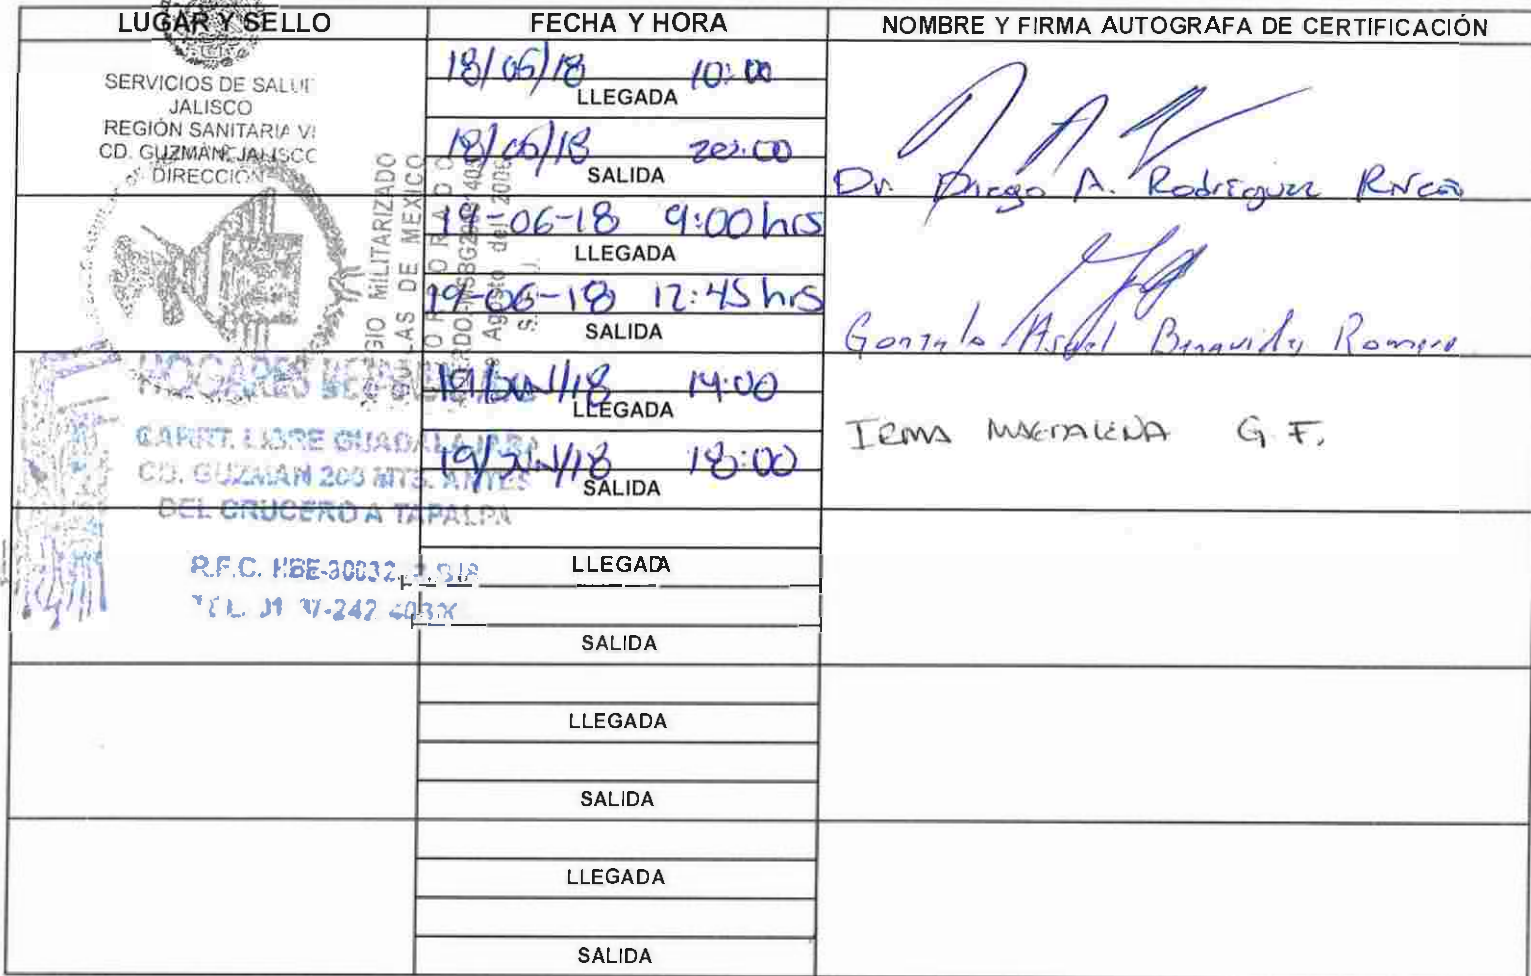 LUGAR Y SELLO
FECHA Y HORA
NOMBRE Y FIRMA AUTOGRAFA DE CERTIFICACIÓN
SERVICIOS DE SALUD
JALISCO
REGIÓN SANITARIA VI
CD. GUZMÁN, JALISCO
DIRECCIÓN
18/06/18 10:00
LLEGADA
18/06/18 20:00
SALIDA
Dr. Diego A. Rodriguez
MILITARIZADO
DE MEXICO
19-06-18 9:00 hrs
LLEGADA
19-06-18 12:45 hrs
SALIDA
Gonzalo Benavides Romero
HOGARES
CARRT. LIBRE GUADALAJARA
CD. GUZMAN 200 MTS. ANTES
DEL CRUCERO A TAPALPA
R.F.C. HBE-
19/JUN/18 14:00
LLEGADA
19/JUN/18 18:00
SALIDA
IRMA MAGDALENA G F.
LLEGADA
SALIDA
LLEGADA
SALIDA
LLEGADA
SALIDA